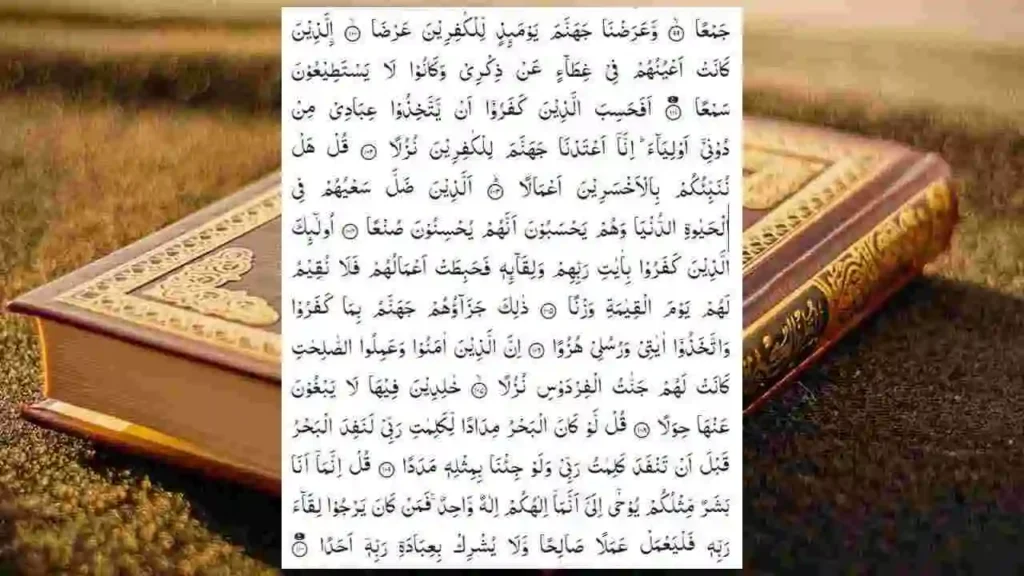 جَمْعًا ۙ﴿۹۹﴾ وَّعَرَضْنَا جَهَنَّمَ يَوْمَىِٕذٍ لِّلْكٰفِرِيْنَ عَرْضَا ۙ﴿۱۰۰﴾ اِلَّذِيْنَ
كَانَتْ اَعْيُنُهُمْ فِيْ غِطَآءٍ عَنْ ذِكْرِيْ وَكَانُوْا لَا يَسْتَطِيْعُوْنَ
سَمْعًا ﴿۱۰۱﴾ اَفَحَسِبَ الَّذِيْنَ كَفَرُوْٓا اَنْ يَّتَّخِذُوْا عِبَادِيْ مِنْ
دُوْنِيْٓ اَوْلِيَآءَ ؕ اِنَّآ اَعْتَدْنَا جَهَنَّمَ لِلْكٰفِرِيْنَ نُزُلًا ﴿۱۰۲﴾ قُلْ هَلْ
نُنَبِّئُكُمْ بِالْاَخْسَرِيْنَ اَعْمَالًا ؕ﴿۱۰۳﴾ اَلَّذِيْنَ ضَلَّ سَعْيُهُمْ فِي
الْحَيٰوةِ الدُّنْيَا وَهُمْ يَحْسَبُوْنَ اَنَّهُمْ يُحْسِنُوْنَ صُنْعًا ﴿۱۰۴﴾ اُولٰٓىِٕكَ
الَّذِيْنَ كَفَرُوْا بِاٰيٰتِ رَبِّهِمْ وَلِقَآىِٕهٖ فَحَبِطَتْ اَعْمَالُهُمْ فَلَا نُقِيْمُ
لَهُمْ يَوْمَ الْقِيٰمَةِ وَزْنًا ﴿۱۰۵﴾ ذٰلِكَ جَزَآؤُهُمْ جَهَنَّمُ بِمَا كَفَرُوْا
وَاتَّخَذُوْٓا اٰيٰتِيْ وَرُسُلِيْ هُزُوًا ﴿۱۰۶﴾ اِنَّ الَّذِيْنَ اٰمَنُوْا وَعَمِلُوا الصّٰلِحٰتِ
كَانَتْ لَهُمْ جَنّٰتُ الْفِرْدَوْسِ نُزُلًا ۙ﴿۱۰۷﴾ خٰلِدِيْنَ فِيْهَا لَا يَبْغُوْنَ
عَنْهَا حِوَلًا ﴿۱۰۸﴾ قُلْ لَّوْ كَانَ الْبَحْرُ مِدَادًا لِّكَلِمٰتِ رَبِّيْ لَنَفِدَ الْبَحْرُ
قَبْلَ اَنْ تَنْفَدَ كَلِمٰتُ رَبِّيْ وَلَوْ جِئْنَا بِمِثْلِهٖ مَدَدًا ﴿۱۰۹﴾ قُلْ اِنَّمَآ اَنَا
بَشَرٌ مِّثْلُكُمْ يُوْحٰٓى اِلَيَّ اَنَّمَآ اِلٰهُكُمْ اِلٰهٌ وَّاحِدٌ ۚ فَمَنْ كَانَ يَرْجُوْا لِقَآءَ
رَبِّهٖ فَلْيَعْمَلْ عَمَلًا صَالِحًا وَّلَا يُشْرِكْ بِعِبَادَةِ رَبِّهٖٓ اَحَدًا ﴿۱۱۰﴾